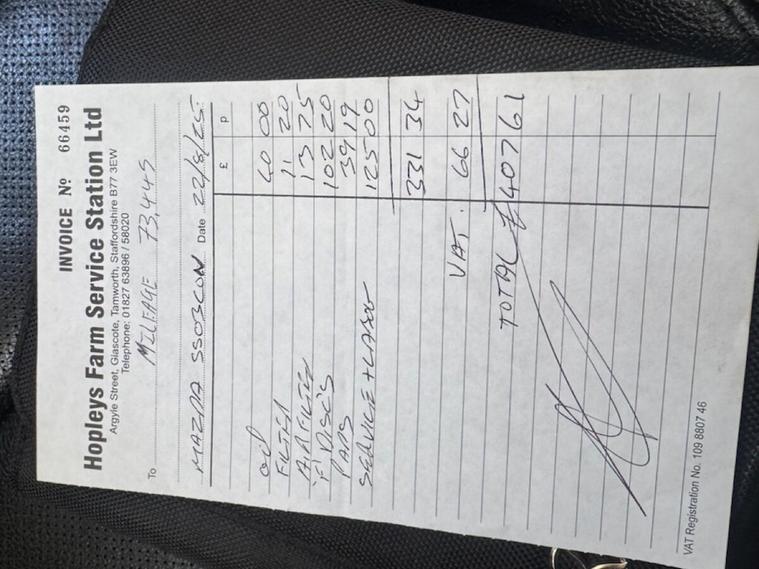 INVOICE No 66459
Hopleys Farm Service Station Ltd
Argyle Street, Glascote, Tamworth, Staffordshire B77 3EW
Telephone: 01827 63896 / 58020
MILEAGE 73,445
To
MAZDA SS03CON Date 22/8/25
£ p
OIL 40 00
FILTER 11 20
AIR FILTER 13 75
F DISC'S 102 20
PADS 39 19
SERVICE + LABOUR 125 00
331 34
VAT. 66 27
TOTAL £ 407 61
VAT Registration No. 109 8807 46